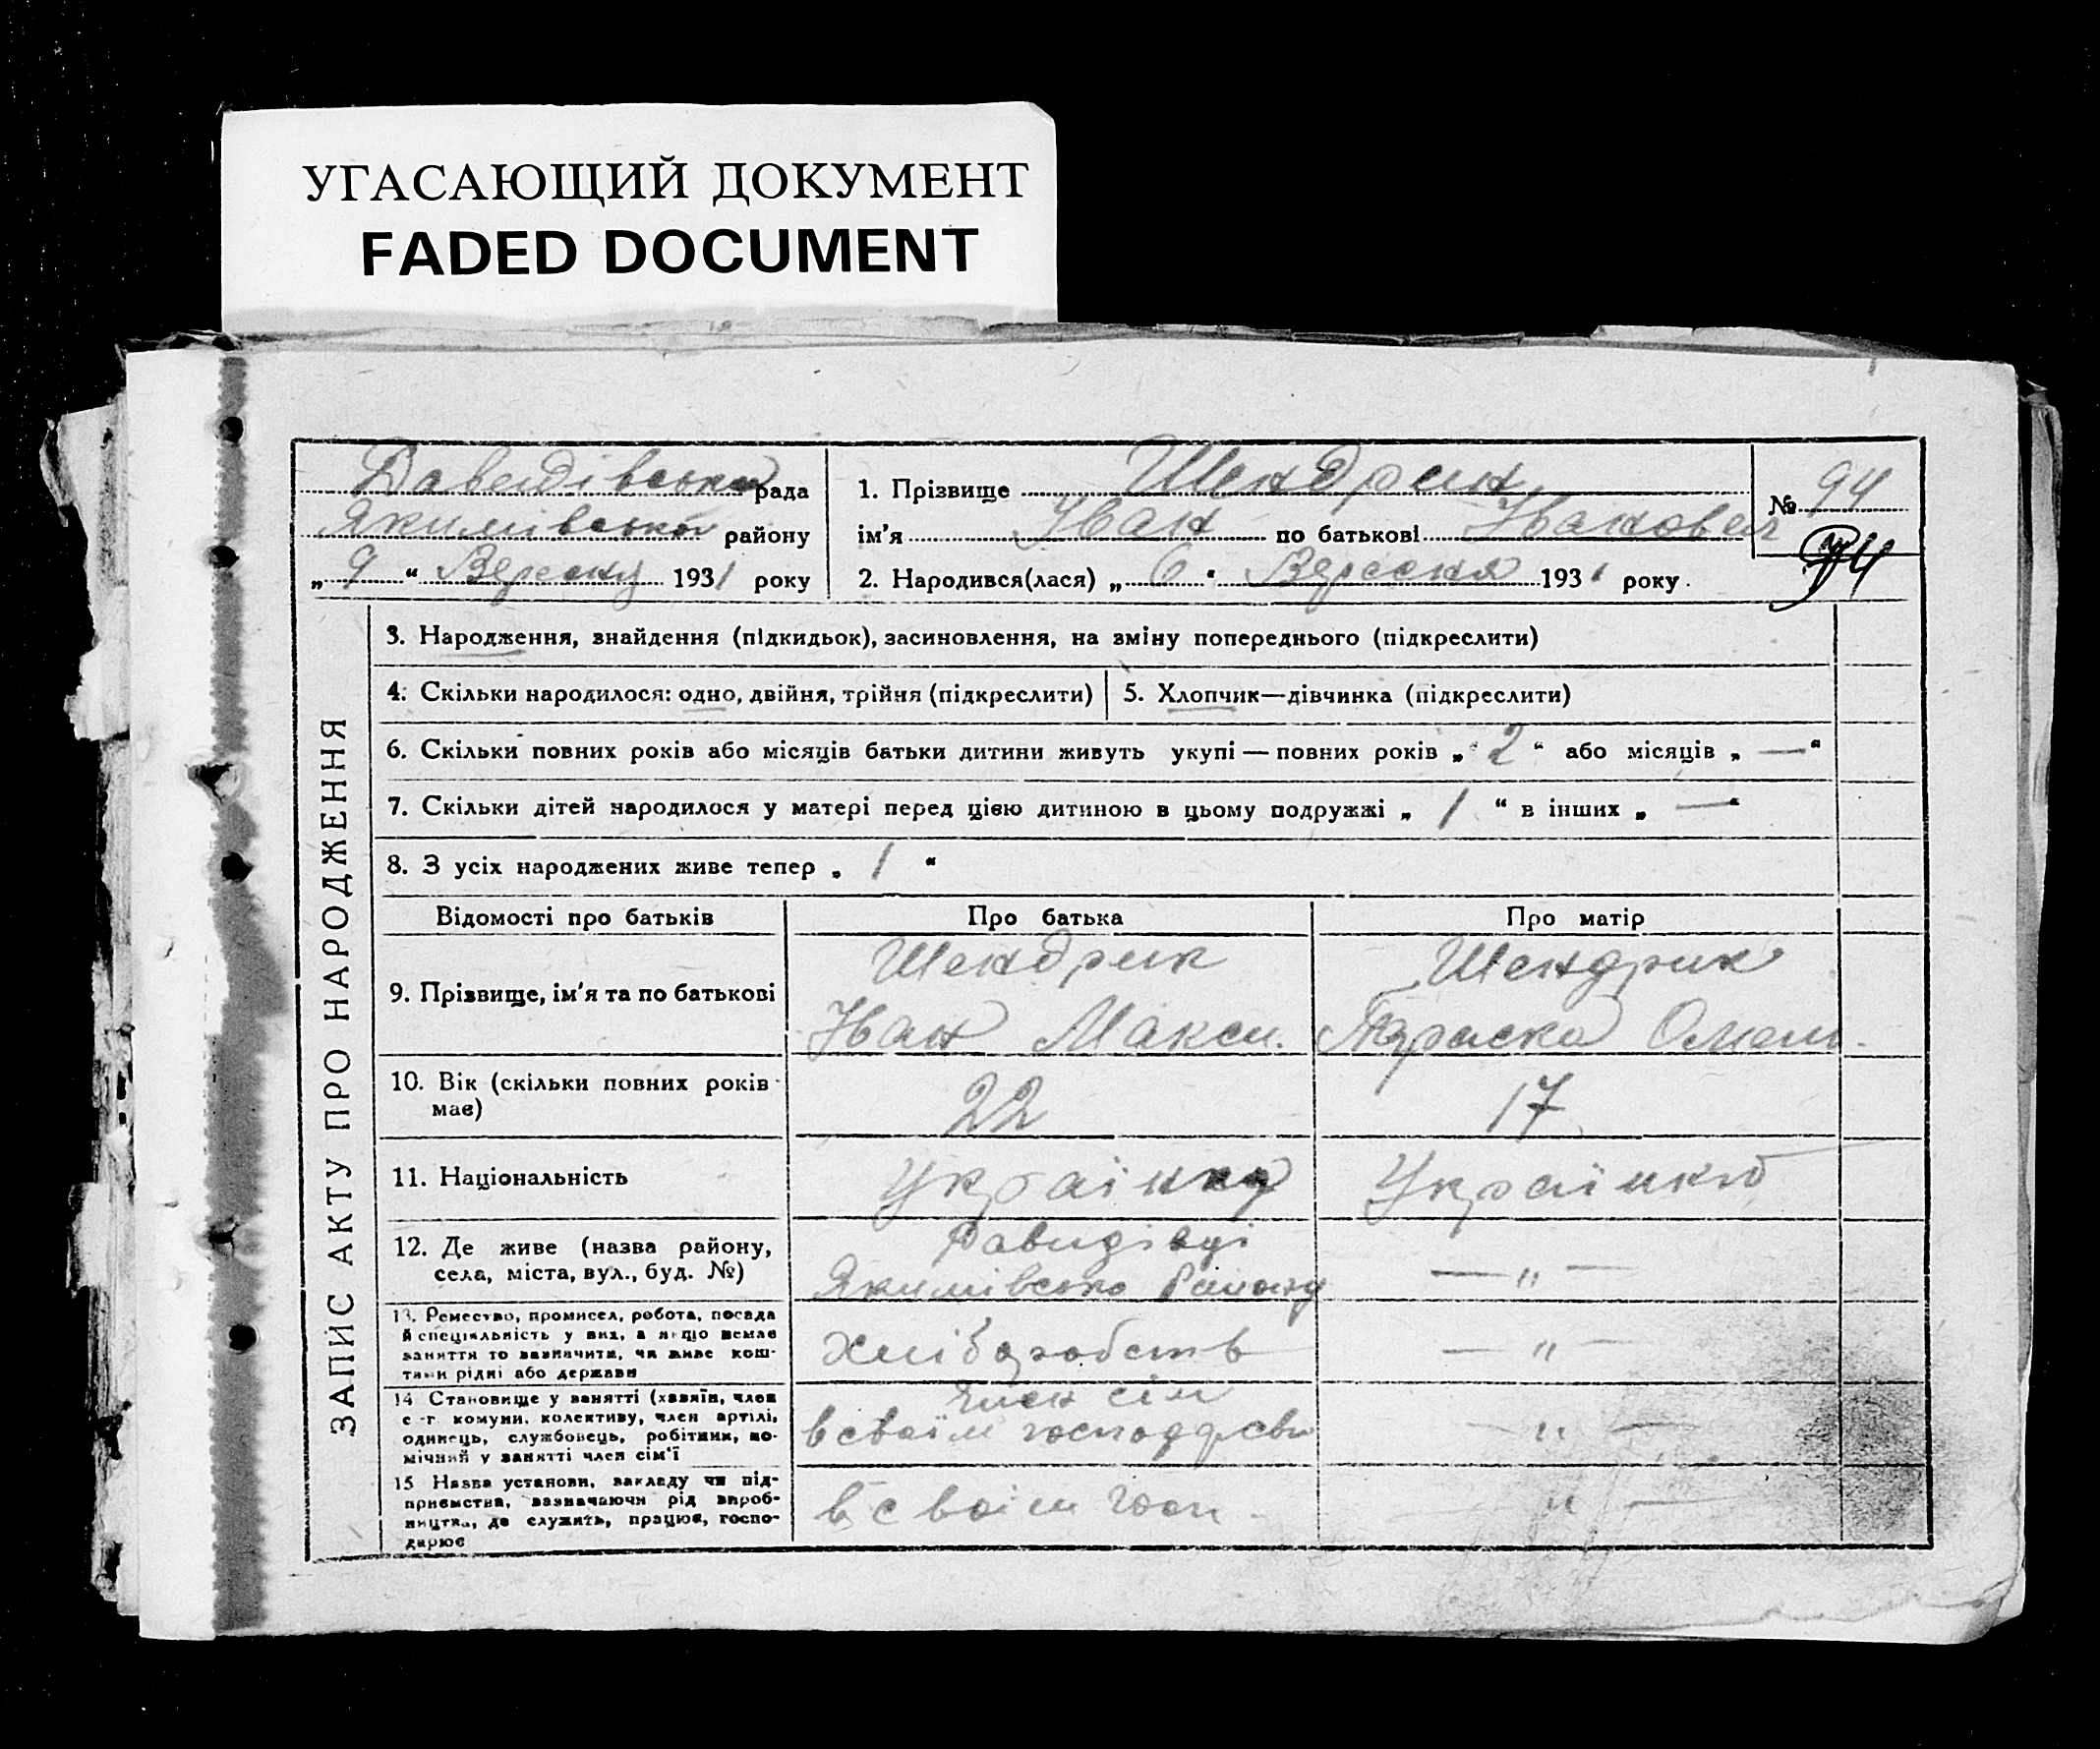 УГАСАЮЩИЙ ДОКУМЕНТ
FADED DOCUMENT
Давидівська рада
Якимівсько району
„ 9 “ Вересня 1931 року
1. Прізвище Шендрик
ім'я Іван по батькові Іванович
2. Народився(лася) „ 6 “ Вересня 1931 року.
№ 94
ЗАПИС АКТУ ПРО НАРОДЖЕННЯ
3. Народження, знайдення (підкидьок), засиновлення, на зміну попереднього (підкреслити)
4. Скільки народилося: одно, двійня, трійня (підкреслити)
5. Хлопчик—дівчинка (підкреслити)
6. Скільки повних років або місяців батьки дитини живуть укупі — повних років „ 2 “ або місяців „ — “
7. Скільки дітей народилося у матері перед цією дитиною в цьому подружжі „ 1 “ в інших „ — “
8. З усіх народжених живе тепер „ 1 “
Відомості про батьків
Про батька
Про матір
9. Прізвище, ім'я та по батькові
Шендрик
Іван Макси.
Шендрик
Параска Омел.
10. Вік (скільки повних років
має)
22
17
11. Національність
Українка
12. Де живе (назва району,
села, міста, вул., буд. №)
Давидівці
Якимівсько Району
— „ —
13. Ремество, промисел, робота, посада
й спеціяльність у них, а якщо немає
заняття то зазначити, чи живе кош-
тами рідні або держави
хліборобств
— „ —
14 Становище у занятті (хазяїн, член
с -г комуни, колективу, член артілі,
одинець, службовець, робітник, по-
мічний у занятті член сім'ї
член сім
в своїм господрстві
— „ —
15 Назва установи, закладу чи під-
приємства, зазначаючи рід вироб-
ництва, де служить, працює, госпо-
дарює
в своїм госп.
— „ —